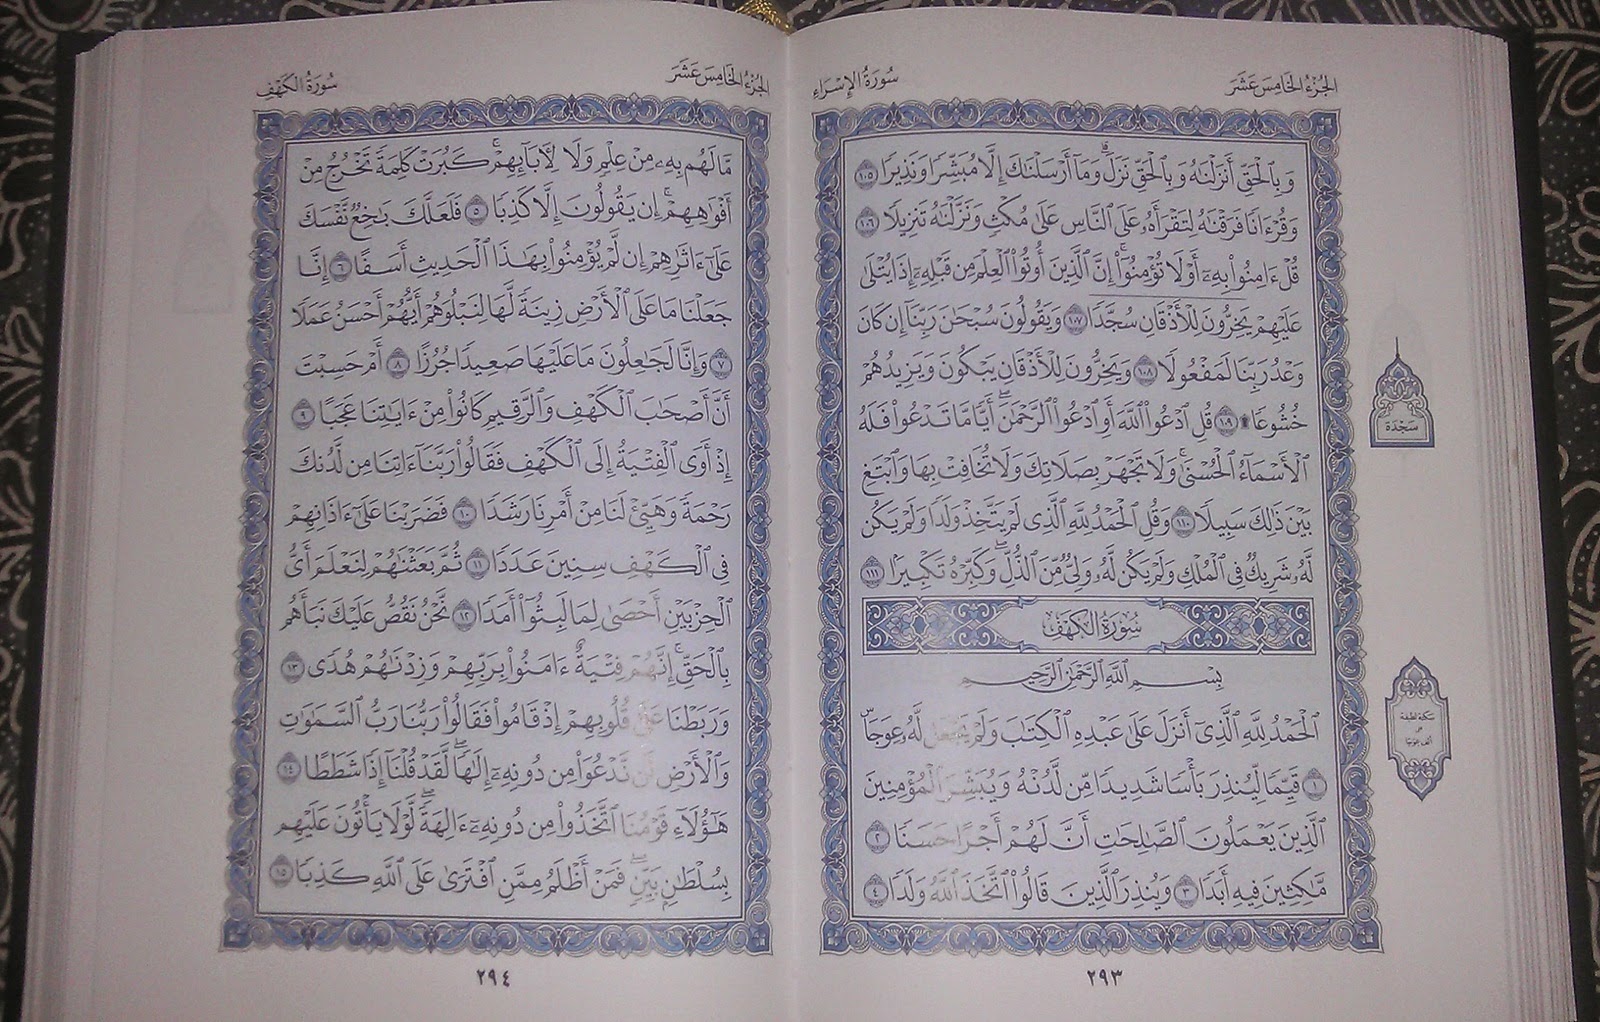 الجزء الخامس عشر
سورة الإسراء
وَبِالْحَقِّ أَنزَلْنَٰهُ وَبِالْحَقِّ نَزَلَ ۗ وَمَآ أَرْسَلْنَٰكَ إِلَّا مُبَشِّرًا وَنَذِيرًا ١٠٥
وَقُرْءَانًا فَرَقْنَٰهُ لِتَقْرَأَهُۥ عَلَى النَّاسِ عَلَىٰ مُكْثٍ وَنَزَّلْنَٰهُ تَنزِيلًا ١٠٦
قُلْ ءَامِنُوا۟ بِهِۦٓ أَوْ لَا تُؤْمِنُوٓا۟ ۚ إِنَّ الَّذِينَ أُوتُوا۟ الْعِلْمَ مِن قَبْلِهِۦٓ إِذَا يُتْلَىٰ
عَلَيْهِمْ يَخِرُّونَ لِلْأَذْقَانِ سُجَّدًا ١٠٧ وَيَقُولُونَ سُبْحَٰنَ رَبِّنَآ إِن كَانَ
وَعْدُ رَبِّنَا لَمَفْعُولًا ١٠٨ وَيَخِرُّونَ لِلْأَذْقَانِ يَبْكُونَ وَيَزِيدُهُمْ
خُشُوعًا ۩ ١٠٩ قُلِ ادْعُوا۟ اللَّهَ أَوِ ادْعُوا۟ الرَّحْمَٰنَ ۖ أَيًّا مَّا تَدْعُوا۟ فَلَهُ
الْأَسْمَآءُ الْحُسْنَىٰ ۚ وَلَا تَجْهَرْ بِصَلَاتِكَ وَلَا تُخَافِتْ بِهَا وَابْتَغِ
بَيْنَ ذَٰلِكَ سَبِيلًا ١١٠ وَقُلِ الْحَمْدُ لِلَّهِ الَّذِى لَمْ يَتَّخِذْ وَلَدًا وَلَمْ يَكُن
لَّهُۥ شَرِيكٌ فِى الْمُلْكِ وَلَمْ يَكُن لَّهُۥ وَلِىٌّ مِّنَ الذُّلِّ ۖ وَكَبِّرْهُ تَكْبِيرًۢا ١١١
سورة الكهف
بِسْمِ اللَّهِ الرَّحْمَٰنِ الرَّحِيمِ
الْحَمْدُ لِلَّهِ الَّذِىٓ أَنزَلَ عَلَىٰ عَبْدِهِ الْكِتَٰبَ وَلَمْ يَجْعَل لَّهُۥ عِوَجَا ۜ
١ قَيِّمًا لِّيُنذِرَ بَأْسًا شَدِيدًا مِّن لَّدُنْهُ وَيُبَشِّرَ الْمُؤْمِنِينَ
الَّذِينَ يَعْمَلُونَ الصَّٰلِحَٰتِ أَنَّ لَهُمْ أَجْرًا حَسَنًا ٢
مَّٰكِثِينَ فِيهِ أَبَدًا ٣ وَيُنذِرَ الَّذِينَ قَالُوا۟ اتَّخَذَ اللَّهُ وَلَدًا ٤
سجدة
سكتة لطيفة
على
ألف عوجا
٢٩٣
الجزء الخامس عشر
سورة الكهف
مَّا لَهُم بِهِۦ مِنْ عِلْمٍ وَلَا لِءَابَآئِهِمْ ۚ كَبُرَتْ كَلِمَةً تَخْرُجُ مِنْ
أَفْوَٰهِهِمْ ۚ إِن يَقُولُونَ إِلَّا كَذِبًا ٥ فَلَعَلَّكَ بَٰخِعٌ نَّفْسَكَ
عَلَىٰٓ ءَاثَٰرِهِمْ إِن لَّمْ يُؤْمِنُوا۟ بِهَٰذَا الْحَدِيثِ أَسَفًا ٦ إِنَّا
جَعَلْنَا مَا عَلَى الْأَرْضِ زِينَةً لَّهَا لِنَبْلُوَهُمْ أَيُّهُمْ أَحْسَنُ عَمَلًا
٧ وَإِنَّا لَجَٰعِلُونَ مَا عَلَيْهَا صَعِيدًا جُرُزًا ٨ أَمْ حَسِبْتَ
أَنَّ أَصْحَٰبَ الْكَهْفِ وَالرَّقِيمِ كَانُوا۟ مِنْ ءَايَٰتِنَا عَجَبًا ٩
إِذْ أَوَى الْفِتْيَةُ إِلَى الْكَهْفِ فَقَالُوا۟ رَبَّنَآ ءَاتِنَا مِن لَّدُنكَ
رَحْمَةً وَهَيِّئْ لَنَا مِنْ أَمْرِنَا رَشَدًا ١٠ فَضَرَبْنَا عَلَىٰٓ ءَاذَانِهِمْ
فِى الْكَهْفِ سِنِينَ عَدَدًا ١١ ثُمَّ بَعَثْنَٰهُمْ لِنَعْلَمَ أَىُّ
الْحِزْبَيْنِ أَحْصَىٰ لِمَا لَبِثُوٓا۟ أَمَدًا ١٢ نَّحْنُ نَقُصُّ عَلَيْكَ نَبَأَهُم
بِالْحَقِّ ۚ إِنَّهُمْ فِتْيَةٌ ءَامَنُوا۟ بِرَبِّهِمْ وَزِدْنَٰهُمْ هُدًى ١٣
وَرَبَطْنَا عَلَىٰ قُلُوبِهِمْ إِذْ قَامُوا۟ فَقَالُوا۟ رَبُّنَا رَبُّ السَّمَٰوَٰتِ
وَالْأَرْضِ لَن نَّدْعُوَا۟ مِن دُونِهِۦٓ إِلَٰهًا ۖ لَّقَدْ قُلْنَآ إِذًا شَطَطًا ١٤
هَٰٓؤُلَآءِ قَوْمُنَا اتَّخَذُوا۟ مِن دُونِهِۦٓ ءَالِهَةً ۖ لَّوْلَا يَأْتُونَ عَلَيْهِم
بِسُلْطَٰنٍۭ بَيِّنٍ ۖ فَمَنْ أَظْلَمُ مِمَّنِ افْتَرَىٰ عَلَى اللَّهِ كَذِبًا ١٥
٢٩٤